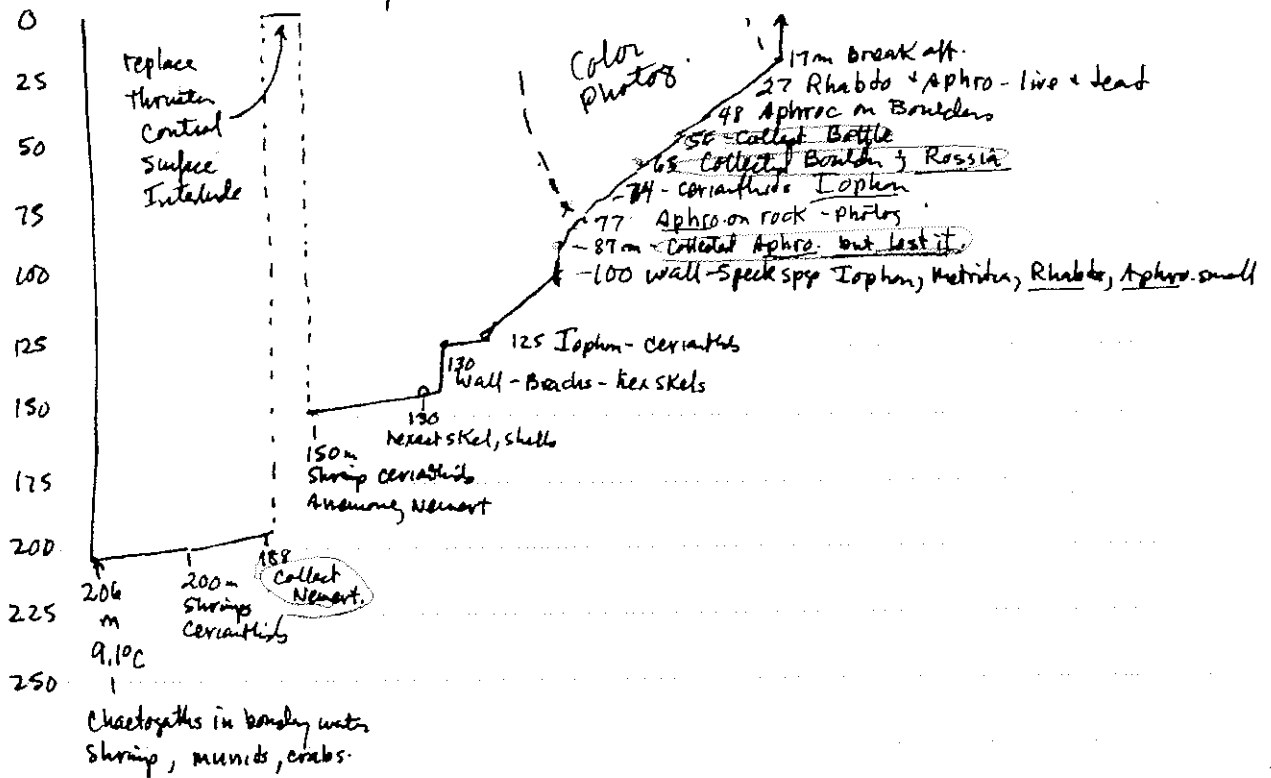 0
25
50
75
100
125
150
175
200
225
250
replace
thruster
control
surface
Interlude
Color
Photos.
17m Break off.
27 Rhabdo + Aphro - live + dead
48 Aphroc on Boulders
56 - Collect Bottle
65 Collected Boulder & Rossia
74 - cerianthids Iophon
77 Aphro. on rock - photos
- 87m - Collected Aphro. but lost it.
- 100 Wall - Speck spgs Iophon, Metridia, Rhabdo, Aphro. small
125 Iophon - cerianthids
130
Wall - Brachs - hex skels
130
hexact skel, shells
150m
Shrimp cerianthids
Anemone, Nemert
188
Collect
Nemert.
200m
Shrimps
Cerianthids
206
m
9.1°C
Chaetogaths in bondry water
Shrimp, munids, crabs.